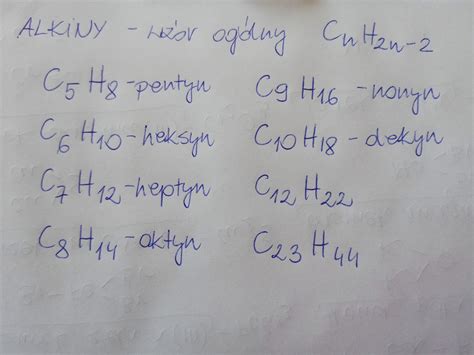 ALKINY - wzór ogólny CnH2n-2
C5H8-pentyn C9H16-nonyn
C6H10-heksyn C10H18-dekyn
C7H12-heptyn C12H22
C8H14-oktyn C23H44